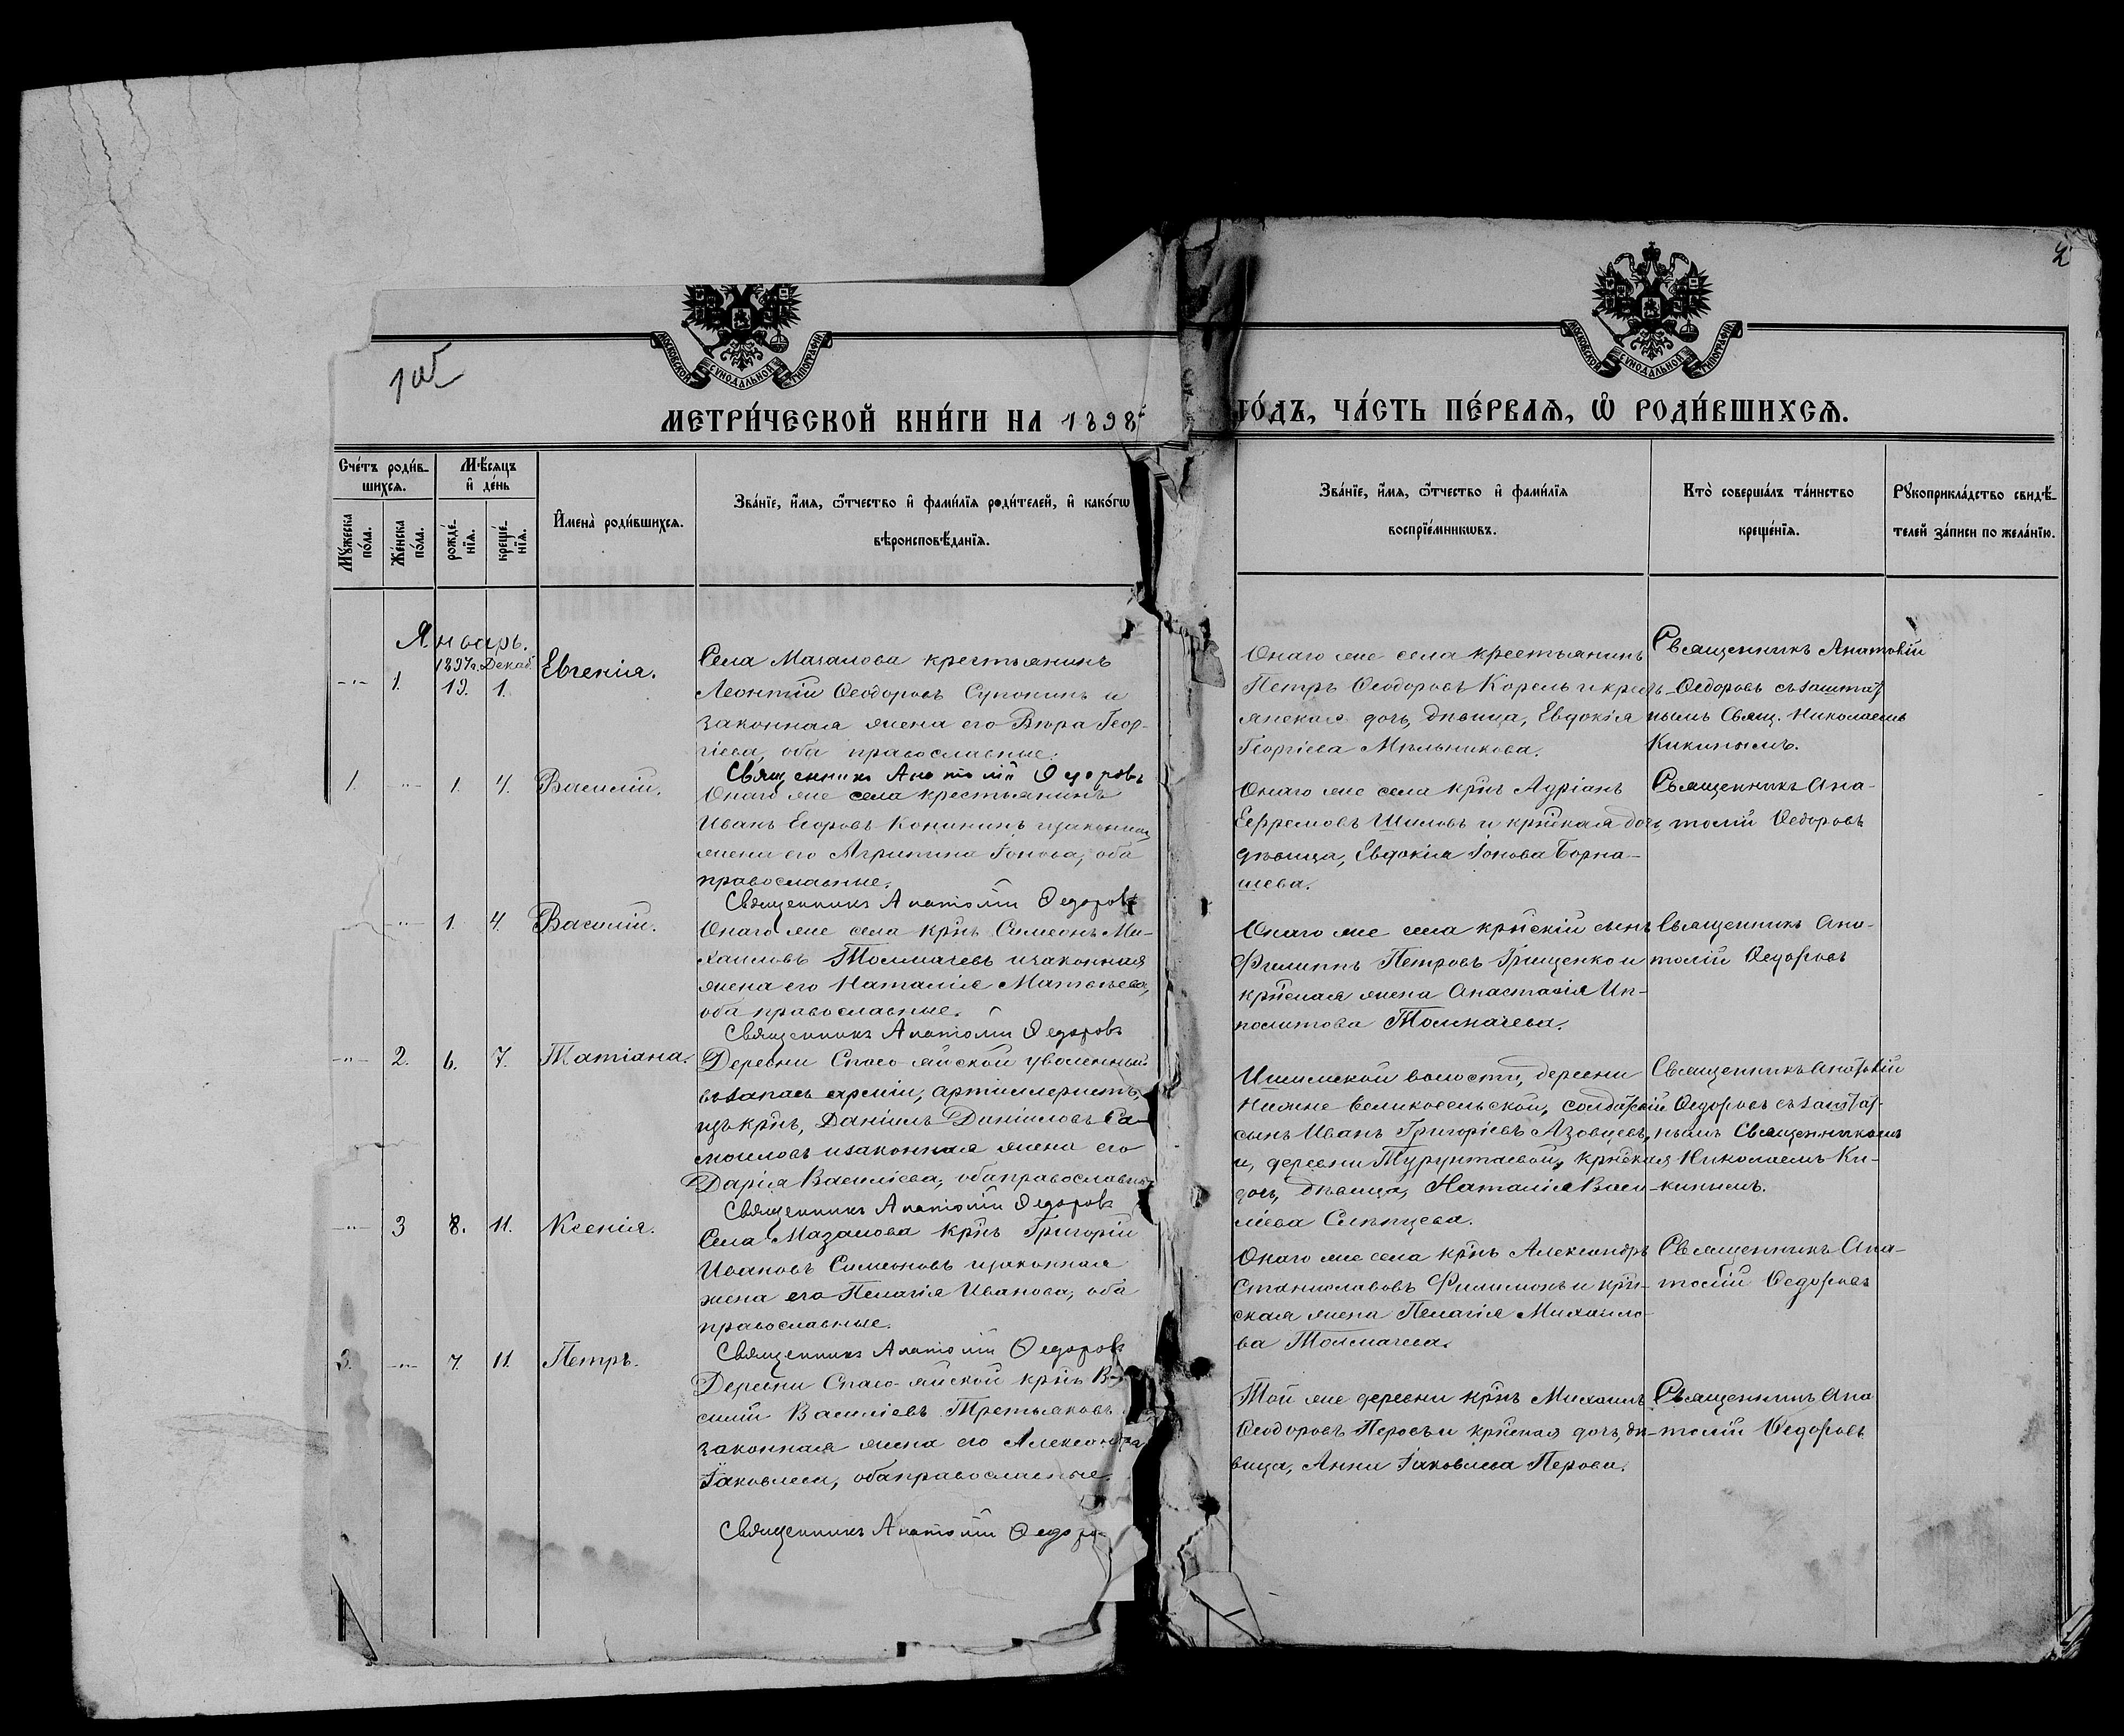 МОСКОВСКОЙ СѴНОДАЛЬНОЙ ТИПОГРАФІИ
МОСКОВСКОЙ СѴНОДАЛЬНОЙ ТИПОГРАФІИ
2
МЕТРИ́ЧЕСКОЙ КНИ́ГИ НА 1898 ГО́ДЪ, ЧА́СТЬ ПЕ́РВАЯ, Ѡ РОДИ́ВШИХСЯ.
Сче́тъ роди́в-
шихся.
Мꙋ́жеска по́ла.
Же́нска по́ла.
Мѣ́сяцъ и҆ де́нь
рожде́-нїя.
креще́-нїя.
И҆мена̀ роди́вшихся.
Зва́нїе, и҆́мя, ѻ҆́тчество и҆ фами́лїя роди́телей, и҆ како́гѡ
вѣроисповѣ́данїя.
Зва́нїе, и҆́мя, ѻ҆́тчество и҆ фами́лїя
воспрїе́мникѡвъ.
Кто̀ соверша́лъ та́инство
креще́нїя.
Рꙋкоприкла́дство свидѣ́-
телей за́писи по жела́нїю.
Январь.
1897г. Декаб.
-"- 1. 19. 1. Евгенія.
Села Мазалова крестьянинъ
Леонтій Ѳеодоровъ Супонинъ и
законная жена его Вѣра Геор-
гіева, оба православные.
Священникъ Анатолій Ѳедоровъ
Онаго же села крестьянинъ
Петръ Ѳеодоровъ Корель и кресть-
янская дочь, дѣвица, Евдокія
Георгіева Мѣльникова.
Священникъ Анатолій
Ѳедоровъ съ заштат
нымъ Свящ. Николаемъ
Кикинымъ.
1. -"- 1. 4. Василій.
Онаго же села крестьянинъ
Иванъ Егоровъ Конинин и законная
жена его Агрипина Іонова, оба
православные.
Священникъ Анатолій Ѳедоровъ
Онаго же села крнъ Адріанъ
Ефремовъ Шиловъ и крнская дочь
дѣвица, Евдокія Іонова Борна-
шева.
Священникъ Ана-
толій Ѳедоровъ
-"- 1. 4. Василій.
Онаго же села крнъ Симеонъ Ми-
хаиловъ Толмачевъ и законная
жена его Наталія Матвѣева,
оба православные.
Священникъ Анатолій Ѳедоровъ
Онаго же села крнскій сынъ
Филиппъ Петровъ Грищенко и
крнская жена Анастасія Ип-
политова Толмачева.
Священникъ Ана-
толій Ѳедоровъ
-"- 2. 6. 7. Татіана.
Деревни Спасо-яйской уволенный
въ запасъ арміи, артиллеристъ,
изъ крнъ, Даніилъ Даніиловъ Са-
моиловъ и законная жена его
Дарія Василіева, оба православные
Священникъ Анатолій Ѳедоровъ
Ишимской волости, деревни
Нижне Великосельской, солдатскій
сынъ Иванъ Григоріевъ Азовцевъ,
и, деревни Турунтаевой, крнская
дочь, дѣвица, Наталія Васи-
ліева Слѣпцева.
Священникъ Анатолій
Ѳедоровъ съ заштат-
нымъ Священникомъ
Николаемъ Ки-
кинымъ.
-"- 3 8. 11. Ксенія.
Села Мазалова крнъ Григорій
Ивановъ Симеоновъ и законная
жена его Пелагія Иванова, оба
православные.
Священникъ Анатолій Ѳедоровъ
Онаго же села крнъ Александръ
Станиславовъ Филимонъ и крн-
ская жена Пелагія Михаило-
ва Толмачева.
Священникъ Ана-
толій Ѳедоровъ
3. -"- 7. 11. Петръ.
Деревни Спасо-яйской крнъ Ва-
силій Василіевъ Третьяковъ
законная жена его Александра
Іаковлева, оба православные.
Священникъ Анатолій Ѳедоро
Той же деревни крнъ Михаилъ
Ѳеодоровъ Перовъ и крнская дочь, дѣ-
вица, Анна Іаковлева Перова.
Священникъ Ана
толій Ѳедоровъ